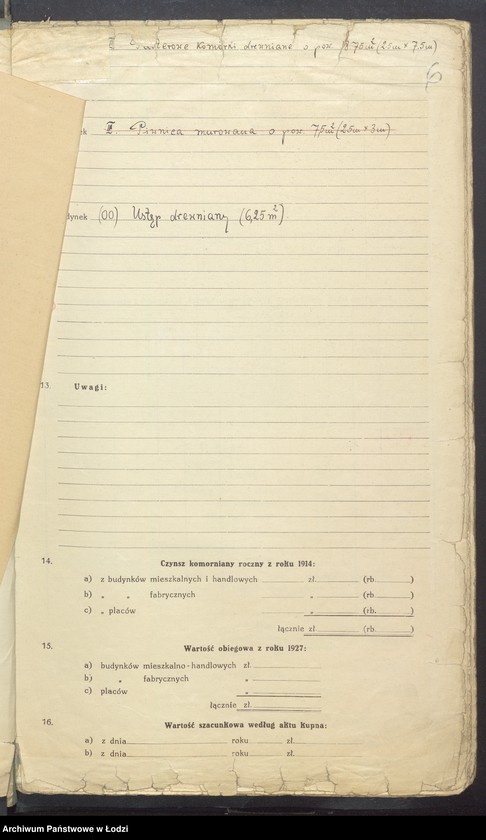 komórki drewniane o pow. 75m² (25m × 7.5m)
6
II. Piwnica murowana o pow. 75m² (25m × 3m)
dynek (00) Ustęp drewniany (6,25 m²)
13. Uwagi:
14. Czynsz komorniany roczny z roku 1914:
a) z budynków mieszkalnych i handlowych zł. (rb. )
b) „ „ fabrycznych „ (rb. )
c) „ placów „ (rb. )
łącznie zł (rb. )
15. Wartość obiegowa z roku 1927:
a) budynków mieszkalno-handlowych zł.
b) „ fabrycznych „
c) placów „
łącznie zł.
16. Wartość szacunkowa według aktu kupna:
a) z dnia roku zł.
b) z dnia roku zł.
Archiwum Państwowe w Łodzi